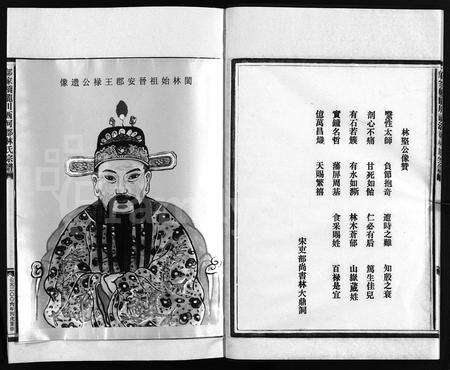 林堅公像贊
性太師 負節抱奇 遭時之難 知殷之衰
剖心不痛 甘死如飴 仁必有后 篤生佳兒
有石若簇 有水如澌 林木蒼郁 山嶽葳
實鍾名哲 藩屏周基 食采賜姓 百祿是宜
億萬昌熾 天賜繁禧
宋吏部尚書林大鼐詞
閩林始祖晉安郡王祿公遺像